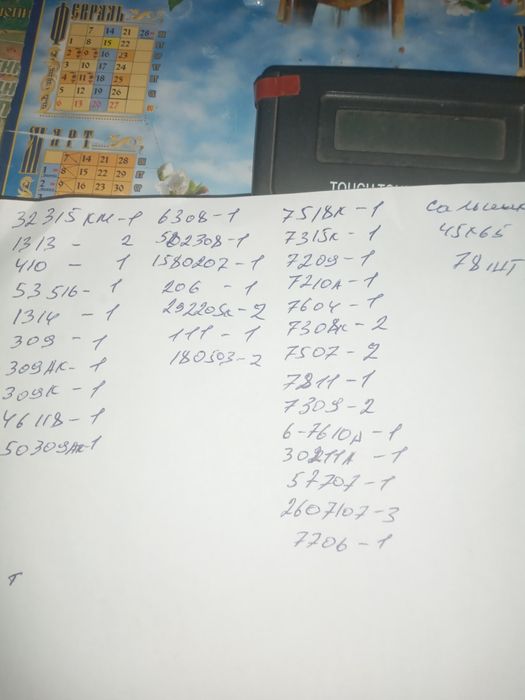 ФЕВРАЛЬ
7 14 21 28
1 8 15 22
2 9 16 23
3 10 17 24
4 11 18 25
5 12 19 26
6 13 20 27
МАРТ
7 14 21 28
1 8 15 22 29
2 9 16 23 30
TOUCH TO
32315 КМ-1
1313 - 2
410 - 1
53516-1
1314 - 1
309 - 1
309АК-1
309К-1
46118-1
50309АК-1
6308-1
502308-1
1580207-1
206 - 1
292205К-2
111 - 1
180503-2
7518К-1
7315К-1
7209-1
7210А-1
7604-1
7308К-2
7507-2
7811-1
7309-2
6-7610А-1
30211А-1
57707-1
2607107-3
7706-1
45х65
78 шт
т